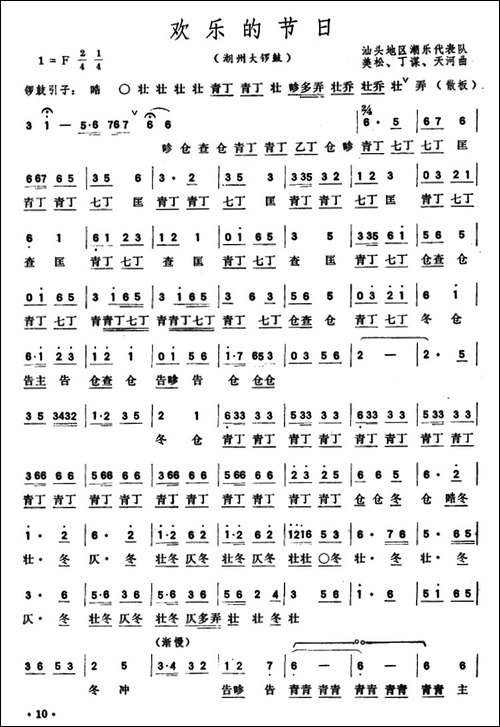 欢乐的节日
1=F 2/4 1/4
(潮州大锣鼓)
汕头地区潮乐代表队
美松、丁谋、天河曲
锣鼓引子: 〇 壮 壮 壮 壮 青丁 青丁 壮 多弄 壮乔 壮乔 壮 弄 (散板)
3 1 — 5·6 767 6 6 2/4 6· 5 | 6765 |
仓 查 仓 青丁 青丁 乙丁 仓 青丁 七丁 七丁 匡
667 65 | 35 6 | 3· 2 | 35 3 | 335 32 | 12 3 | 03 21 |
青丁 青丁 七丁 匡 青丁 七丁 匡 青丁 青丁 七丁 匡 青丁 七丁
6 1 | 61 23 | 1 2 | 01 65 | 3 5 | 335 61 | 5 56 |
查 匡 青丁 七丁 查 匡 青丁 七丁 查 匡 青丁 七丁 仓 查仓
01 65 | 3 165 | 3 165 | 3 63 | 5 56 | 03 21 | 6 1 |
青丁 七丁 青青丁七丁 青青丁七丁 青丁 七丁 仓查 仓 青丁 七丁 冬 仓
6·1 23 | 12 1 | 01 56 | 1·7 653 | 03 56 | 2 — | 2· 5 |
告主 告 仓查 仓 告 告 仓 仓仓
35 3432 | 1·2 35 | 2 1 | 633 33 | 533 33 | 633 33 | 533 33 |
冬 仓 青丁 青丁 青丁 青丁 青丁 青丁 青丁 青丁
366 66 | 566 66 | 366 66 | 566 66 | 23 25 | 66 5 | 6· 2 |
青丁 青丁 青丁 青丁 青丁 青丁 青丁 青丁 青丁 青丁 仓 仓 冬 仓 冬
1· 2 | 6· 2 | 1·2 62 | 1·2 62 | 1216 53 | 2· 3 | 5· 6 |
壮· 冬 仄· 冬 壮冬 仄冬 壮冬 仄冬 壮壮 〇冬 壮· 冬 壮· 冬
3· 6 | 5· 6 | 36 56 | 36 56 | 12 53 | 2 35 | 1· 6 | 51 65 |
仄· 冬 壮冬 仄冬 壮冬 仄多弄 壮 壮 冬 壮
(渐慢)
36 53 | 2 5 | 3·4 32 | 1 12 | 6 6 | 6 6 | 6 6 |
冬 冲 告 告 青青 青青 青青 青青 青青 主
· 10 ·